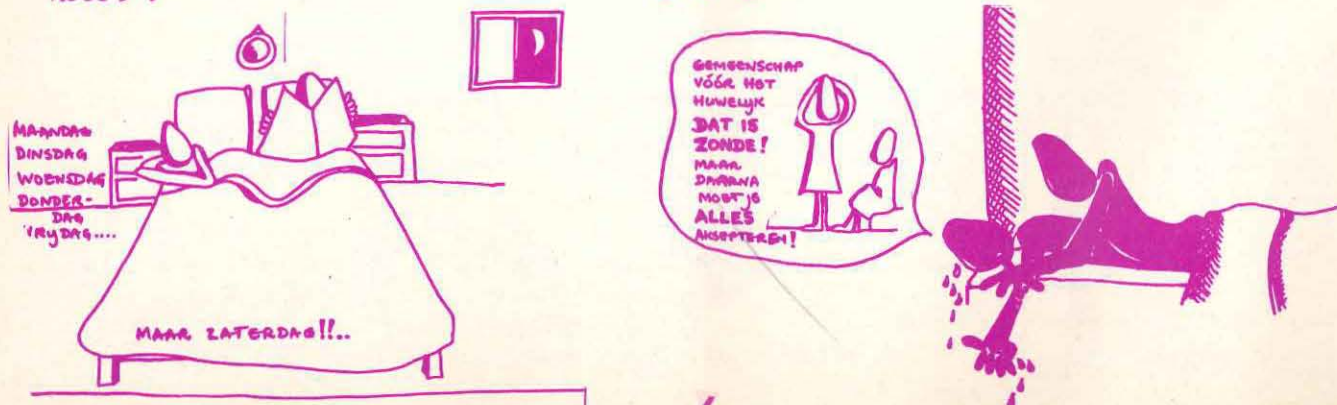 MAANDAG
DINSDAG
WOENSDAG
DONDER-
DAG
VRYDAG....
MAAR ZATERDAG!!..
GEMEENSCHAP
VÓÓR HET
HUWELIJK
DAT IS
ZONDE!
MAAR
DAARNA
MOET JE
ALLES
AKSEPTEREN!